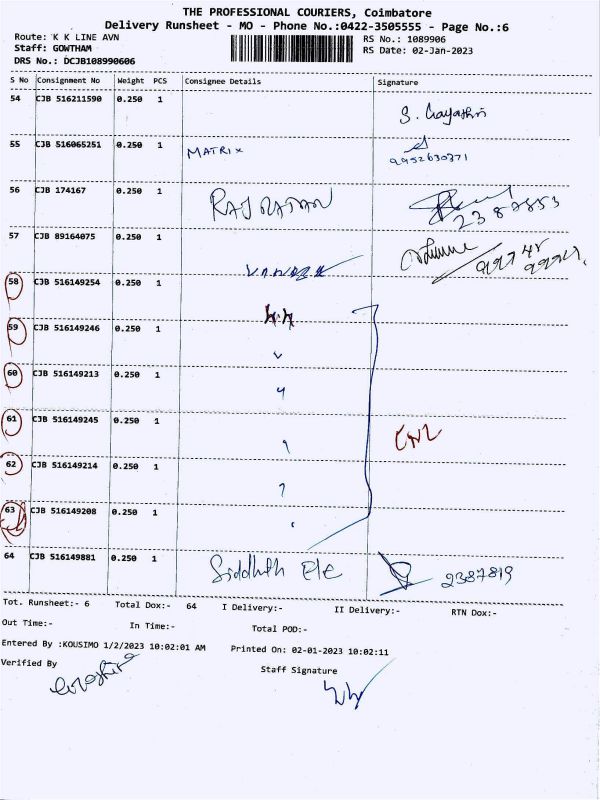 THE PROFESSIONAL COURIERS, Coimbatore
Delivery Runsheet - MO - Phone No.:0422-3505555 - Page No.:6
Route: K K LINE AVN
RS No.: 1089906
Staff: GOWTHAM
RS Date: 02-Jan-2023
DRS No.: DCJB108990606
S No Consignment No Weight PCS Consignee Details Signature
54 CJB 516211590 0.250 1 S. Gayathri
55 CJB 516065251 1 MATRIX 9952630371
56 CJB 174167 0.250 1 RAJ RATAN 2387853
57 CJB 89164075 0.250 1
58 CJB 516149254 0.250 1
59 CJB 516149246 0.250 1
60 CJB 516149213 0.250 1
61 CJB 516149245 0.250 1
62 CJB 516149214 0.250 1
63 CJB 516149208 0.250 1
64 CJB 516149881 0.250 1 Siddhth Ele 2387819
Tot. Runsheet:- 6 Total Dox:- 64 I Delivery:- II Delivery:- RTN Dox:-
Out Time:- In Time:- Total POD:-
Entered By :KOUSIMO 1/2/2023 10:02:01 AM Printed On: 02-01-2023 10:02:11
Verified By
Staff Signature